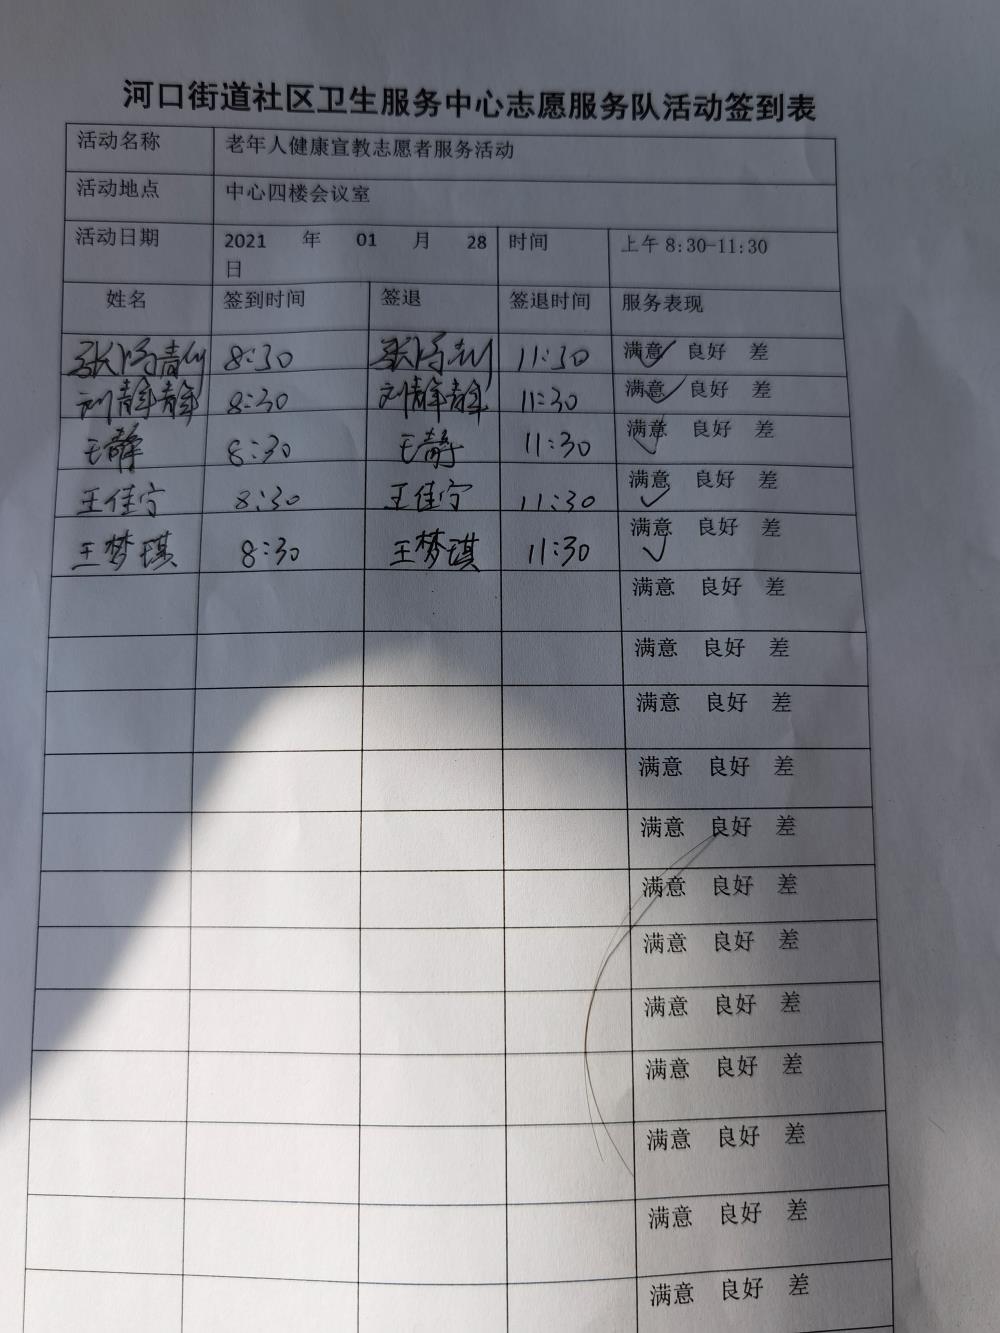 河口街道社区卫生服务中心志愿服务队活动签到表
活动名称 老年人健康宣教志愿者服务活动
活动地点 中心四楼会议室
活动日期 2021 年 01 月 28 日 时间 上午 8:30-11:30
姓名 签到时间 签退 签退时间 服务表现
8:30 11:30 满意✓ 良好 差
刘静静 8:30 刘静静 11:30 满意✓ 良好 差
王静 8:30 王静 11:30 满意✓ 良好 差
王佳宁 8:30 王佳宁 11:30 满意✓ 良好 差
王梦琪 8:30 王梦琪 11:30 满意✓ 良好 差
满意 良好 差
满意 良好 差
满意 良好 差
满意 良好 差
满意 良好 差
满意 良好 差
满意 良好 差
满意 良好 差
满意 良好 差
满意 良好 差
满意 良好 差
满意 良好 差